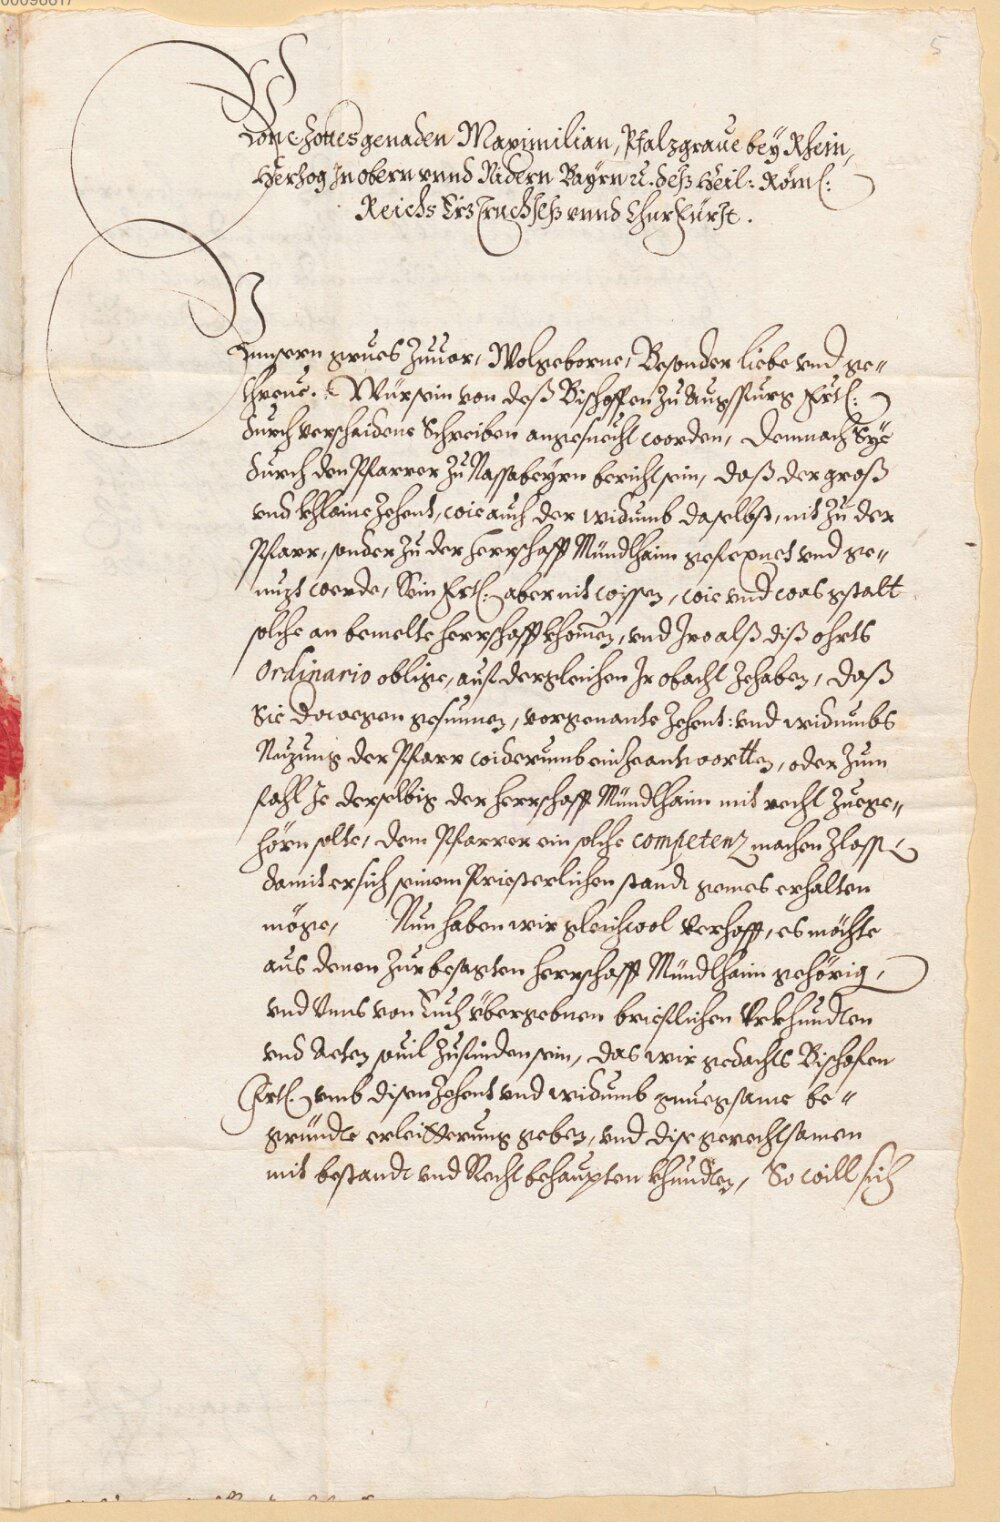 00096617
5
Von Gottes genaden Maximilian, Pfalzgraue bey Rhein,
Herzog In obern vnnd Nidern Bayrn u. deß Heil: Röm:
Reichs Erz Truchseß vnnd Churfürst.
Vnnsern grues Zuuor, Wolgeborne, Besonder liebe vnd ge=
threue. Wür sein von deß Bischoffen Zu Augspurg Frtl:
durch verschaidene Schreiben angesuecht worden, Demnach Sye
durch den Pfarrer Zu Nassabeyrn bericht sein, daß der groß
vnd khlaine Zehent, wie auch der widumb daselbst, nit Zu der
Pfarr, sonder Zu der Herrschafft Mündlhaim gerexnet vnd ge=
nuzt werde, Sein Frtl: aber nit wissen, wie vnd was gstalt
solche an bemelte Herrschafft khomen, vnd Iro alß diß ohrts
Ordinario oblige, auf dergleichen Ir obacht Zehaben, daß
Sie derwegen gesunnen, vorgenante Zehent: vnd widumbs
Nuzung der Pfarr widerumb einzeantwortten, oder Zum
fahl Je derselbig der Herrschafft Mündlhaim mit recht Zuege=
hörn solte, dem Pfarrer ein solche Competenz machen Zlassen
damit er sich seinem Priesterlichen standt gemes erhalten
möge, Nun haben wir gleichwol Verhofft, es möchte
aus denen Zur besagten Herrschafft Mündlhaim gehörig,
vnd Vnns von Euch übergebnen brieflichen Vrkhundten
vnd Acten souil Zufinden sein, das wir gedachts Bischofen
Frtl. vmb disen Zehent vnd widumb gnuegsame be=
gründte erleitterung geben, vnd dise gerechtsamen
mit bestandt vnd Recht behaupten khundten, So will sich